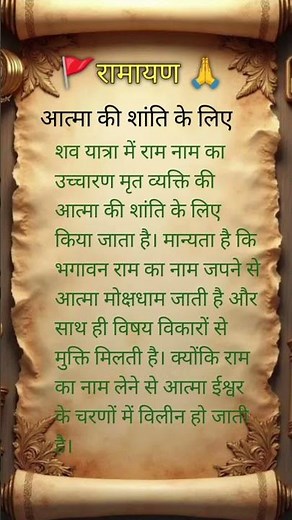 🚩रामायण 🙏
आत्मा की शांति के लिए
शव यात्रा में राम नाम का
उच्चारण मृत व्यक्ति की
आत्मा की शांति के लिए
किया जाता है। मान्यता है कि
भगवान राम का नाम जपने से
आत्मा मोक्षधाम जाती है और
साथ ही विषय विकारों से
मुक्ति मिलती है। क्योंकि राम
का नाम लेने से आत्मा ईश्वर
के चरणों में विलीन हो जाती
है।